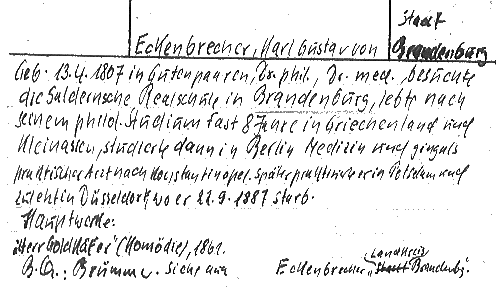 Stadt
Eckenbrecher, Karl Gustav von Brandenburg
Geb. 13.4.1807 in Gutenpaaren, Dr. phil., Dr. med. besuchte
die Saldernsche Realschule in Brandenburg, lebte nach
seinem philol. Studium fast 8 Jahre in Griechenland und
Kleinasien, studierte dann in Berlin Medizin und ging als
praktischer Arzt nach Konstantinopel. Später praktizierte er in Potsdam und
zuletzt in Düsseldorf, wo er 22.9.1887 starb.
Hauptwerke:
"Herr Goldkäfer" (Komödie), 1861.
Landkreis
B.Qu.: Brümmer. Siehe auch Eckenbrecher, "Stadt Brandenbg.